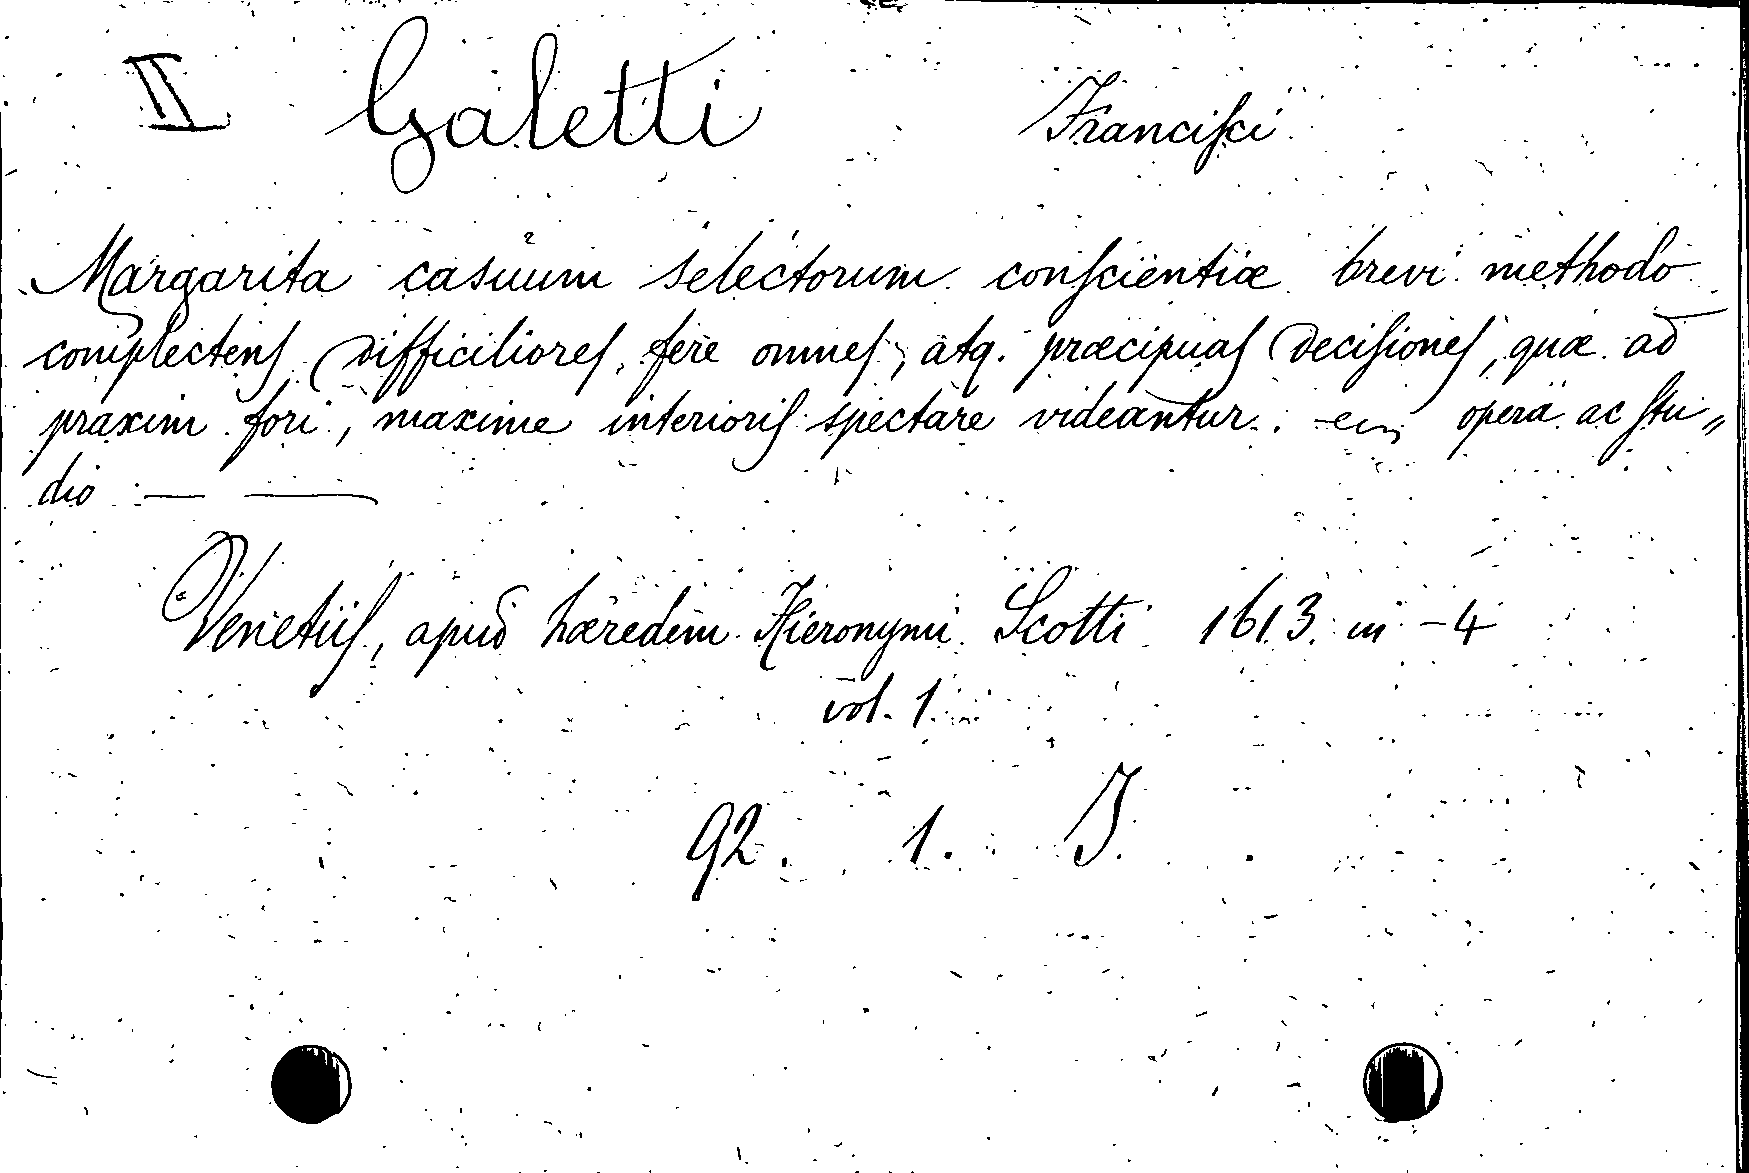 II Galetti Francisci
Margarita casuum selectorum conscientiæ brevi methodo
complectens difficiliores fere omnes, atq. præcipuas decisiones, quæ ad
praxim fori, maxime interioris spectare videantur. opera ac stu„
dio — —
Venetiis, apud hæredem Hieronymi Scotti 1613. in -4
vol. 1.
92. 1. J.